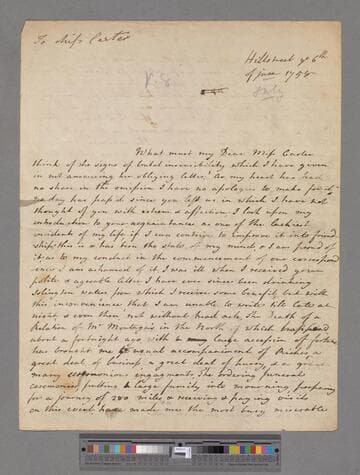 To Miss Carter
Hillstreet ye 6th
of june 1758
July
What must my Dear Miss Carter
think of the signs of brutal insensibility which I have given
in not answering her obliging letter? As my heart has had
no share in the omission I have no apologies to make for it, no
day has pass'd since you left us in which I have not
thought of you with esteem & affection. I look upon my
introduction to your acquaintance as one of the luckiest
incidents of my life if I can contrive to improve it into friend
ship, this is & has been the state of my mind, & I am proud of
it; as to my conduct in the commencement of our correspond
ence I am ashamed of it. I was ill when I received your
polite & agreeable letter, I have ever since been drinking
Islington Water from which I receive some benefit but with
this inconvenience that I am unable to write till late at
night & even then not without head ake. The Death of a
Relation of Mr Montagu's in the North which happend
about a fortnight ago with a large accession of fortune
has brought me the usual accompanyment of Riches, a
great deal of business, a great deal of hurry, & a great
many ceremonious engagements. The ordering funeral
ceremonies, putting a large family into mourning, preparing
for a journey of 280 miles, & receiving & paying visits
on this event have made me the most busy miserable